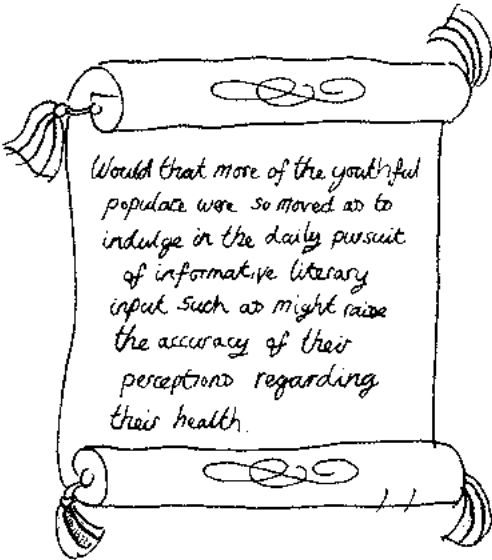 Would that more of the youthful
populace were so moved as to
indulge in the daily pursuit
of informative literary
input such as might raise
the accuracy of their
perceptions regarding
their health.